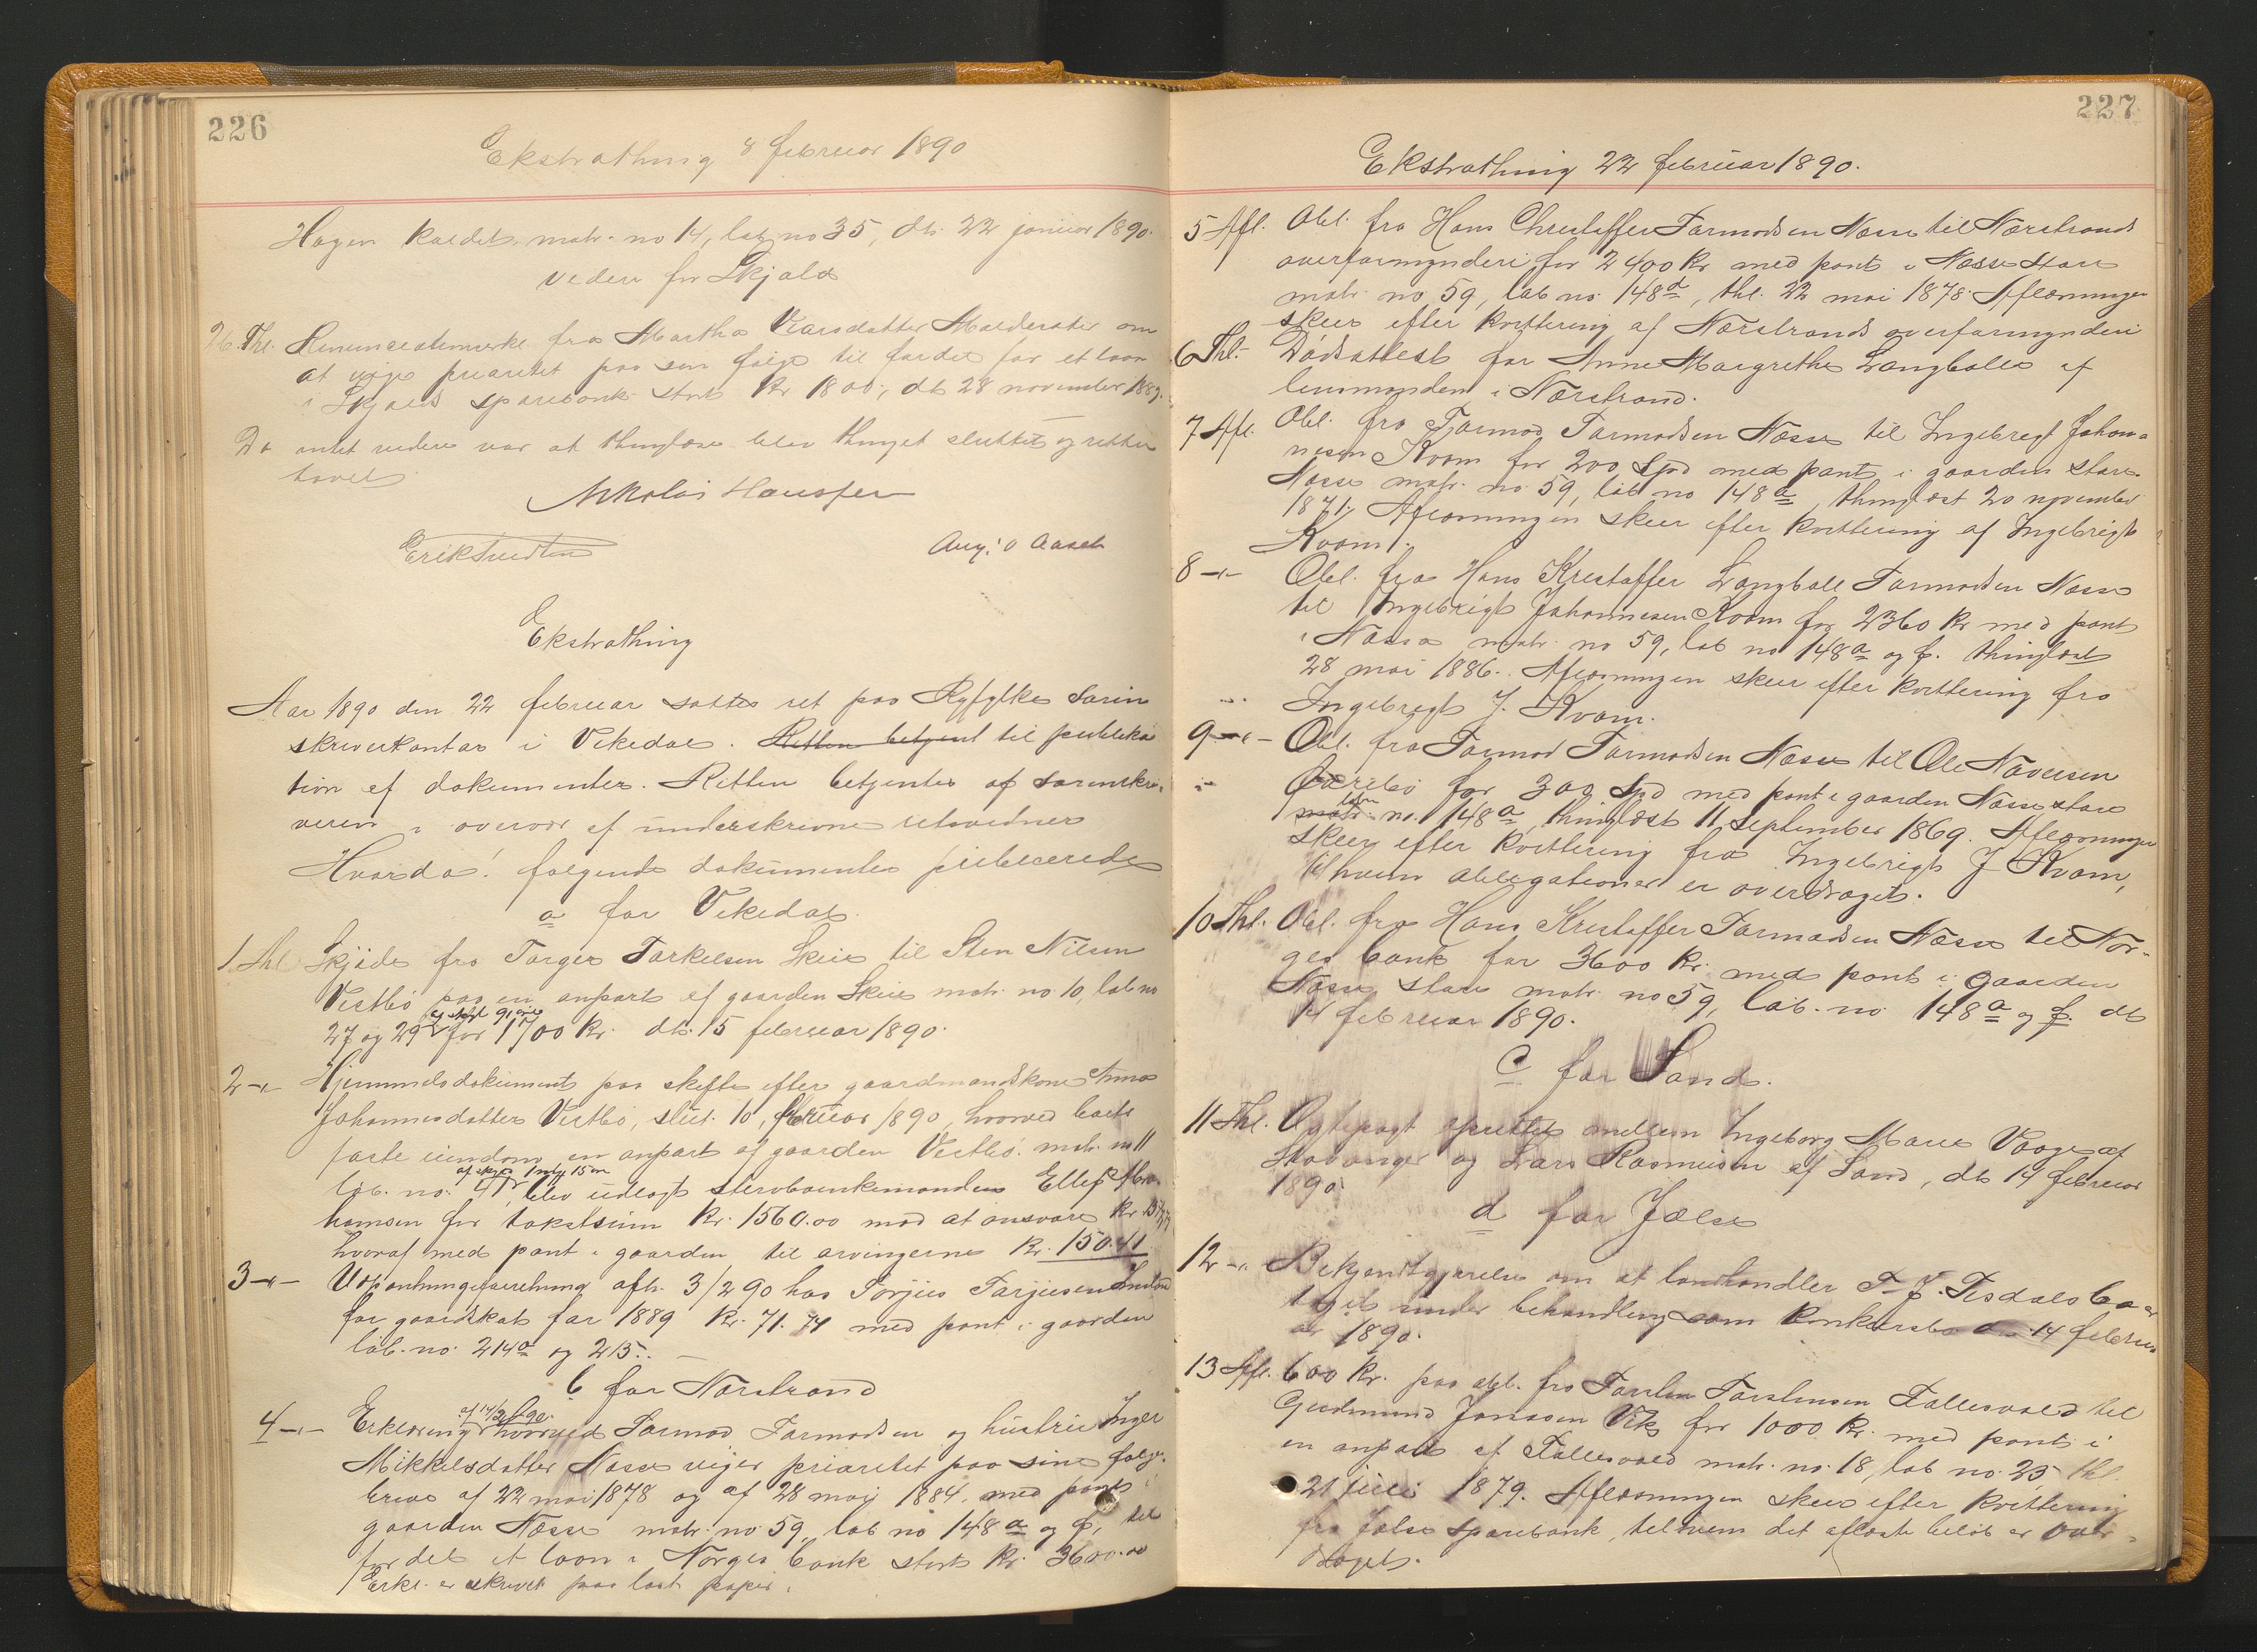 226
Ekstrathing 8 februar 1890
Hagen kaldet matr. no 14, løb no 35, dt. 22 januar 1890.
videre for Skjold
26. Thl. fra Martha om
at vige prioritet paa sin følge til fordel for et laan
i Skjolds sparebank stort Kr 1800, dt 28 november 1889.
Da intet videre var at thinglæse blev thinget sluttet og retten
hævet
Nikolai Hausken
Aug. O Aasen
Ekstrathing
Aar 1890 den 22 februar sattes ret paa Ryfylke Soren
skriverkontor i Vikedal. Retten betjent til publika
tion af dokumenter. Retten betjentes af sorenskri
veren i overvær af underskrivne retsvidner
Hvorda! følgende dokumenter publiceredes
a for Vikedal.
1 Thl Skjøde fra Torger Torkelsen Skeie til Sten Nilsen
Vestbø paa en anpart af gaarden Skeie matr. no 10, løb no
af skyl 91 øre
27 og 29 for 1700 Kr. dt. 15 februar 1890.
2 -"- Hjemmelsdokument paa skifte efter gaardmandskone Anna
Johannesdatter Vestbø, slut. 10 februar 1890, hvorved boets
faste eiendom en anpart af gaarden Vestbø matr. no 11
af skyld 1 mk 15 øre
løb. no. 41, blev udlagt sterbboenkemanden Ellef Abra-
hamsen for takstsum Kr. 1560.00 mod at ansvare Kr.
hvoraf med pant i gaarden til arvingerne Kr. 150.41
3 -"- Udpantningsforretning afh. 3/2 90 hos Torjus Torjusen
for gaardskat for 1889 Kr. 71.74 med pant i gaarden
løb. no. 214a og 215.
b for Nærstrand
af 14/2 90
4 -"- Erklæring hvorved Tormod Tormodsen og hustru Inger
Mikkelsdatter Næsse viger prioritet paa sine følge-
breve af 22 mai 1878 og af 28 maj 1884 med pant i
gaarden Næsse matr. no 59, løb no 148a og f, til
fordel et laan i Norges bank stort Kr. 3600.00
Erkl. er skrevet paa løst papir.
227
Ekstrathing 22 februar 1890.
5 Afl. Obl. fra Hans Christoffer Tormodsen Næsse til Nærstrands
overformynderi for 2400 Kr med pant i Næsse store
matr. no 59, løb no. 148a, thl. 22 mai 1878. Aflæsningen
skeer efter kvittering af Nærstrands overformynderi
6 Thl. Dødsattest for Anne Margrethe Langballe af
lensmanden i Nærstrand.
7 Afl. Obl. fra Tormod Tormodsen Næsse til Ingebregt Johan-
nesen Kvam for 200 Spd med pant i gaarden store
Næsse matr. no 59, løb no 148a, thinglæst 20 november
1871. Aflæsningen skeer efter kvittering af Ingebrigt
Kvam.
8 -"- Obl. fra Hans Kristoffer Langball Tormodsen Næsse
til Ingebrigt Johannesen Kvam for 2360 Kr med pant
i Næsse matr. no 59, løb no 148a og f. thinglæst
28 mai 1886. Aflæsningen skeer efter kvittering fra
Ingebregt J. Kvam.
9 -"- Obl. fra Tormod Tormodsen Næsse til Ole
for 300 Spd med pant i gaarden Næsse store
løbe
matr. no. 148a, thinglæst 11 September 1869. Aflæsningen
skeer efter kvittering fra Ingebrigt J Kvam,
til hvem obligationen er overdraget.
10 Thl. Obl. fra Hans Kristoffer Tormodsen Næsse til Nor-
ges bank for 3600 Kr. med pant i gaarden
Næsse store matr. no 59, løb. no. 148a og f. dt
14 februar 1890.
c for Sand.
11 Thl. Ægtepagt oprettet mellem Ingeborg Marie Vaage af
Stavanger og Lars Rasmusen af Sand, dt 14 februar
1890.
d for Jælse
12 -"- Bekjendtgjørelse om at landhandler T. J. Tisdals bo er
taget under behandling som Konkursbo den 14 febru-
ar 1890.
13 Afl. 600 Kr. paa obl. fra til
Gudmund Jonassen Vik for 1000 Kr. med pant i
en anpart af matr. no. 18, løb no. 25, thl.
21 juli 1879. Aflæsningen skeer efter kvittering
fra Jælse Sparebank, til hvem det aflæste beløb er over-
draget.